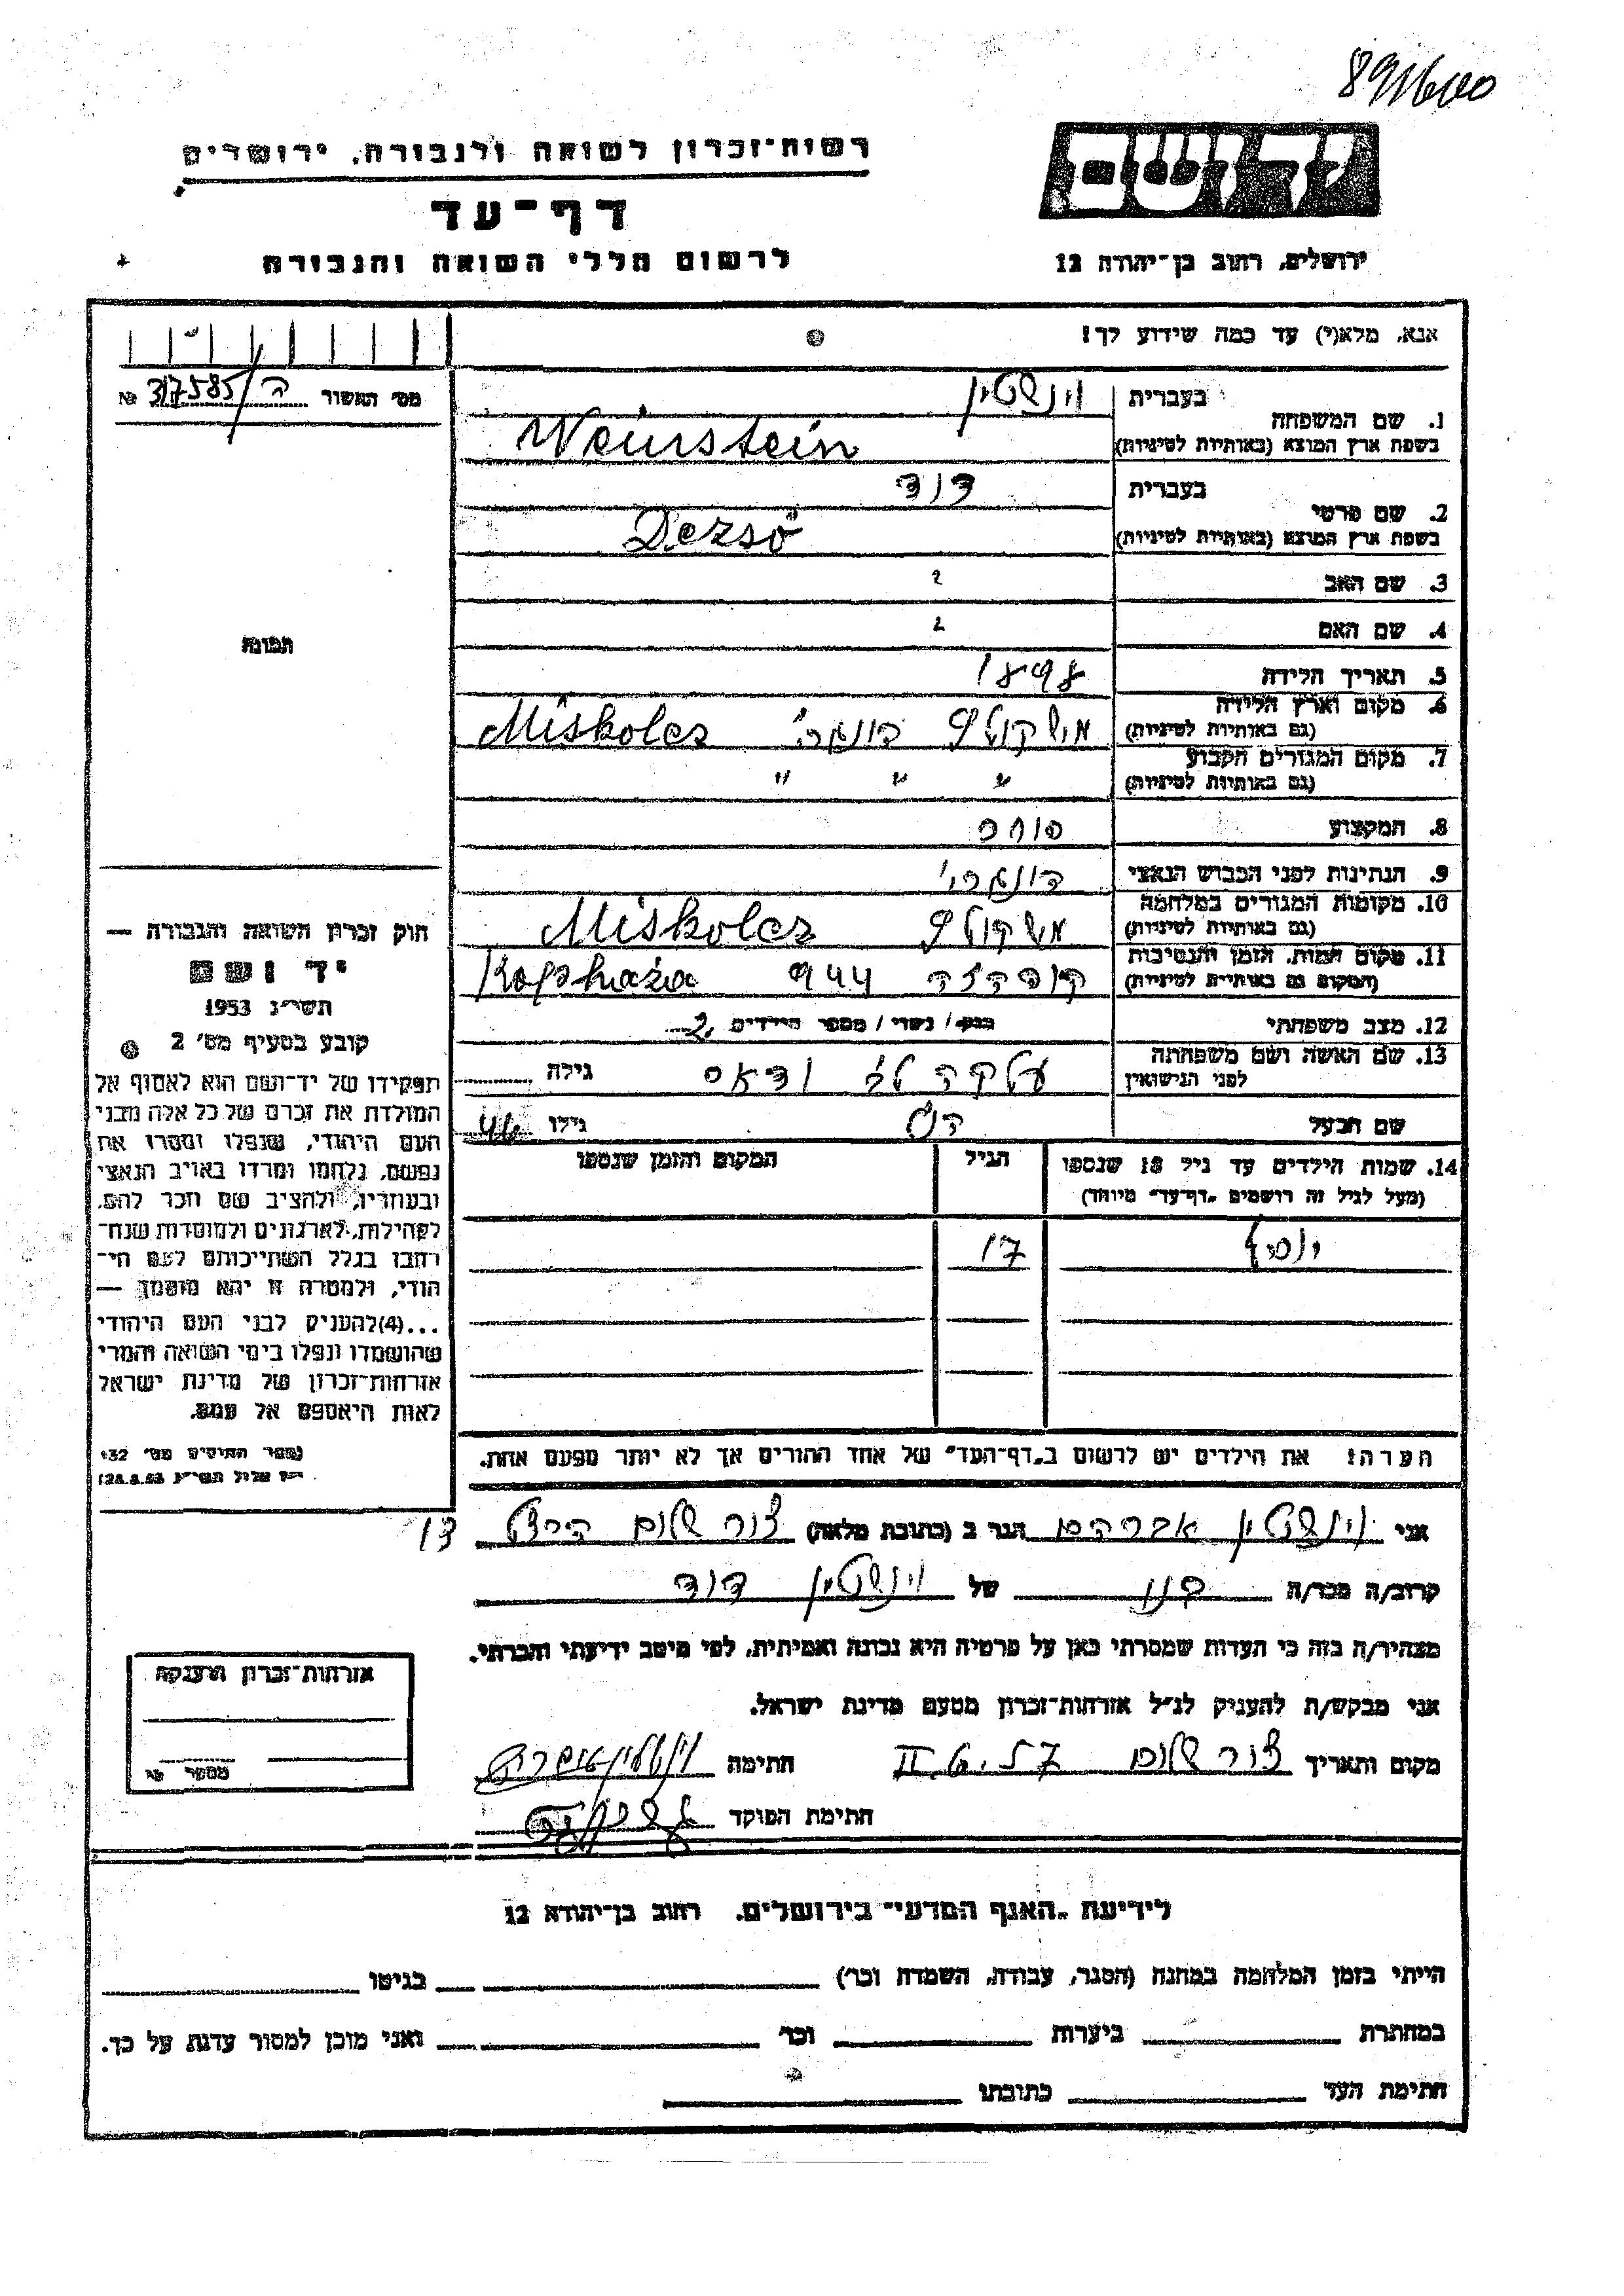 8911600
רשות־זכרון לשואה ולגבורה, ירושלים
יד ושם
דף־עד
לרשום חללי השואה והגבורה
ירושלים, רחוב בן־יהודה 12
אנא, מלא(י) עד כמה שידוע לך!
מס׳ האשור ה/317585 №
1. שם המשפחה
בעברית וינשטיין
בשפת ארץ המוצא (באותיות לטיניות) Weinstein
2. שם פרטי
בעברית דוד
בשפת ארץ המוצא (באותיות לטיניות) Dezső
3. שם האב ?
4. שם האם ?
5. תאריך הלידה 1898
6. מקום וארץ הלידה
(גם באותיות לטיניות) מישקולץ הונגרי׳ Miskolcz
7. מקום המגורים הקבוע
(גם באותיות לטיניות) " " "
8. המקצוע סוחר
9. הנתינות לפני הכבוש הנאצי הונגרי׳
10. מקומות המגורים במלחמה
(גם באותיות לטיניות) מישקולץ Miskolcz
11. מקום המות, הזמן והנסיבות
(המקום גם באותיות לטיניות) קופהזה 944 Kopháza
12. מצב משפחתי רווק / נשוי / מספר הילדים 2
13. שם האשה ושם משפחתה
לפני הנישואין גילה
שם הבעל גילו 46
14. שמות הילדים עד גיל 18 שנספו
(מעל לגיל זה רושמים „דף־עד״ מיוחד)
הגיל
המקום והזמן שנספו
יוסף 17
הערה: את הילדים יש לרשום ב„דף־העד״ של אחד ההורים אך לא יותר מפעם אחת.
תמונה
חוק זכרון השואה והגבורה —
יד ושם
תשי״ג 1953
קובע בסעיף מס׳ 2
תפקידו של יד־ושם הוא לאסוף אל
המולדת את זכרם של כל אלה מבני
העם היהודי, שנפלו ומסרו את
נפשם, נלחמו ומרדו באויב הנאצי
ובעוזריו, ולהציב שם וזכר להם,
לקהילות, לארגונים ולמוסדות שנח־
רבו בגלל השתייכותם לעם הי־
הודי, ולמטרה זו יהא מוסמך —
...(4)להעניק לבני העם היהודי
שהושמדו ונפלו בימי השואה והמרי
אזרחות־זכרון של מדינת ישראל
לאות היאספם אל עמם.
(ספר החוקים מס׳ 132
י״ז אלול תשי״ג 28.8.53)
אני וינשטיין אברהם הגר ב (כתובת מלאה) צור שלום 13
קרוב/ה מכר/ה בנו של וינשטיין דוד
מצהיר/ה בזה כי העדות שמסרתי כאן על פרטיה היא נכונה ואמיתית, לפי מיטב ידיעתי והכרתי.
אני מבקש/ת להעניק לנ״ל אזרחות־זכרון מטעם מדינת ישראל.
מקום ותאריך צור שלום חתימה וינשטיין אברהם
חתימת הפוקד
אזרחות־זכרון הוענקה
מספר №
לידיעת „האגף המדעי״ בירושלים, רחוב בן־יהודא 12
הייתי בזמן המלחמה במחנה (הסגר, עבודה, השמדה וכו׳) בגיטו
במחתרת ביערות וכו׳ ואני מוכן למסור עדות על כך.
חתימת העד כתובתו